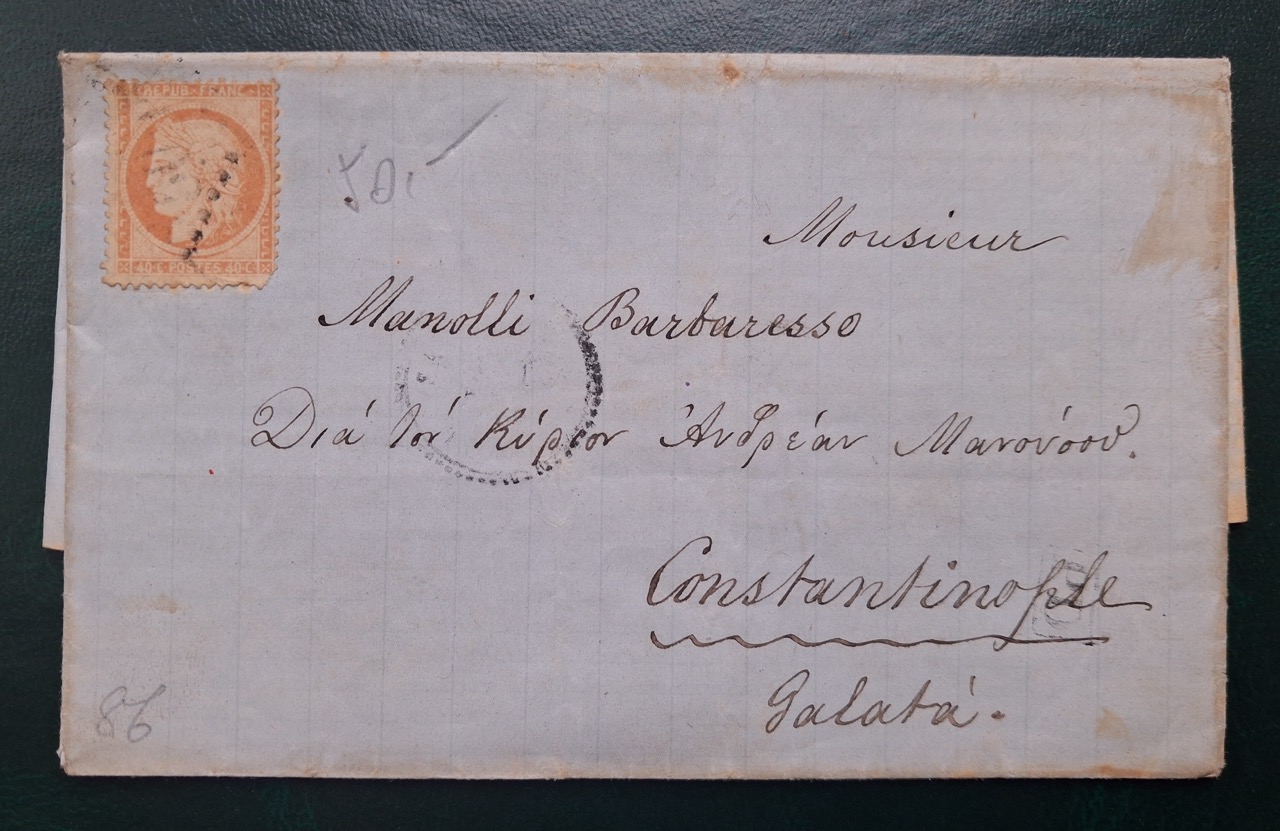 REPUB·FRANC·
40·C·POSTES·40·C
Monsieur
Manolli Barbaresso
Διά τόν Κύριον Ἀνδρέαν
Constantinople
Galatá.
86